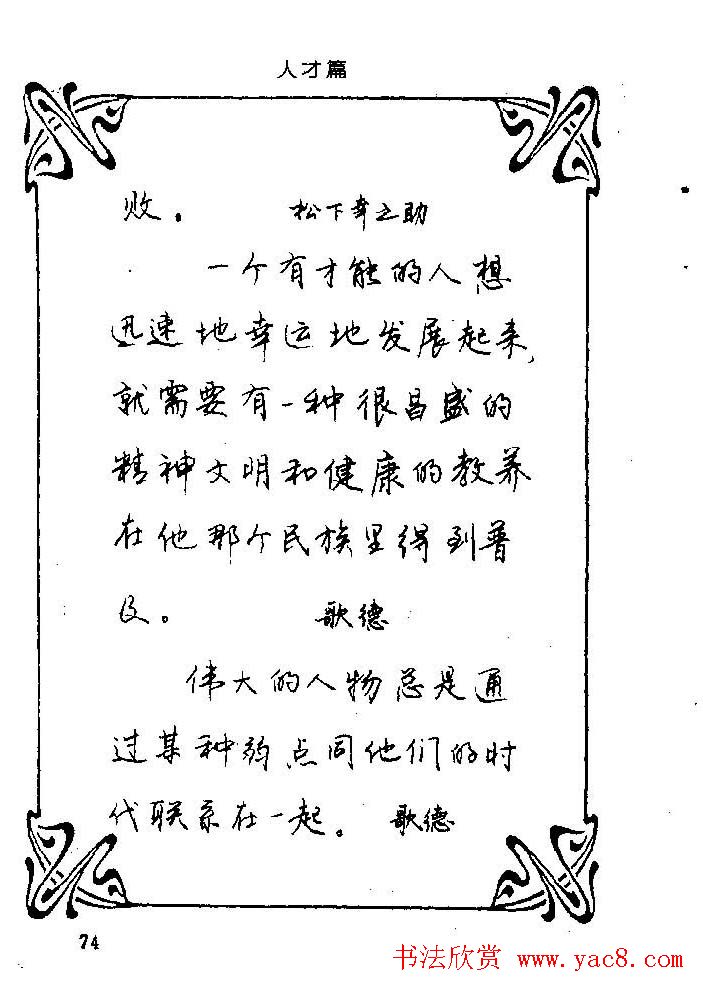 人才篇
败。 松下幸之助
一个有才能的人想
迅速地幸运地发展起来,
就需要有一种很昌盛的
精神文明和健康的教养
在他那个民族里得到普
及。 歌德
伟大的人物总是通
过某种弱点同他们的时
代联系在一起。 歌德
74
书法欣赏 www.yac8.com